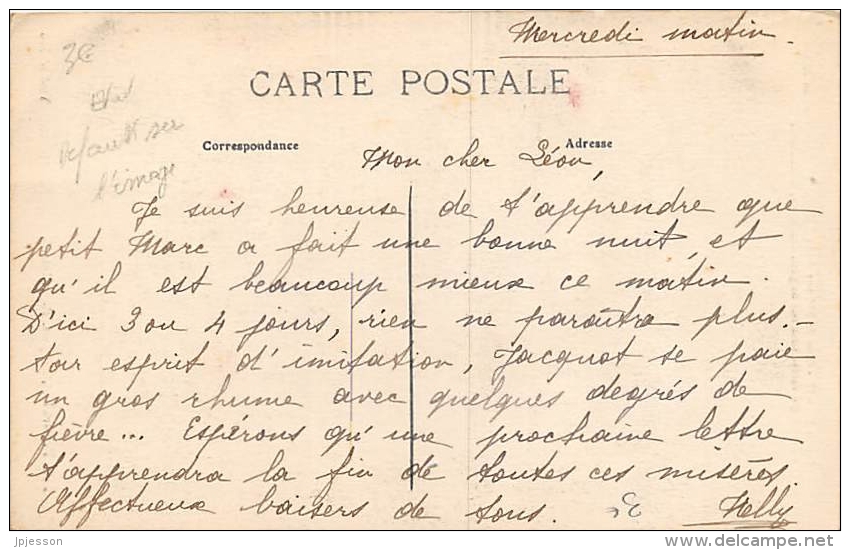 Mercredi matin.
3€
CARTE POSTALE
Defaut sur
l'image
Correspondance
Adresse
Mon cher Léon,
Je suis heureuse de t'apprendre que
petit Marc a fait une bonne nuit, et
qu'il est beaucoup mieux ce matin.
D'ici 3 ou 4 jours, rien ne paraîtra plus. -
Par esprit d'imitation, Jacquot se paie
un gros rhume avec quelques degrés de
fièvre... Espérons qu'une prochaine lettre
t'apprendra la fin de toutes ces misères.
Affectueux baisers de tous.
Nelly
jpjesson
delcampe.net